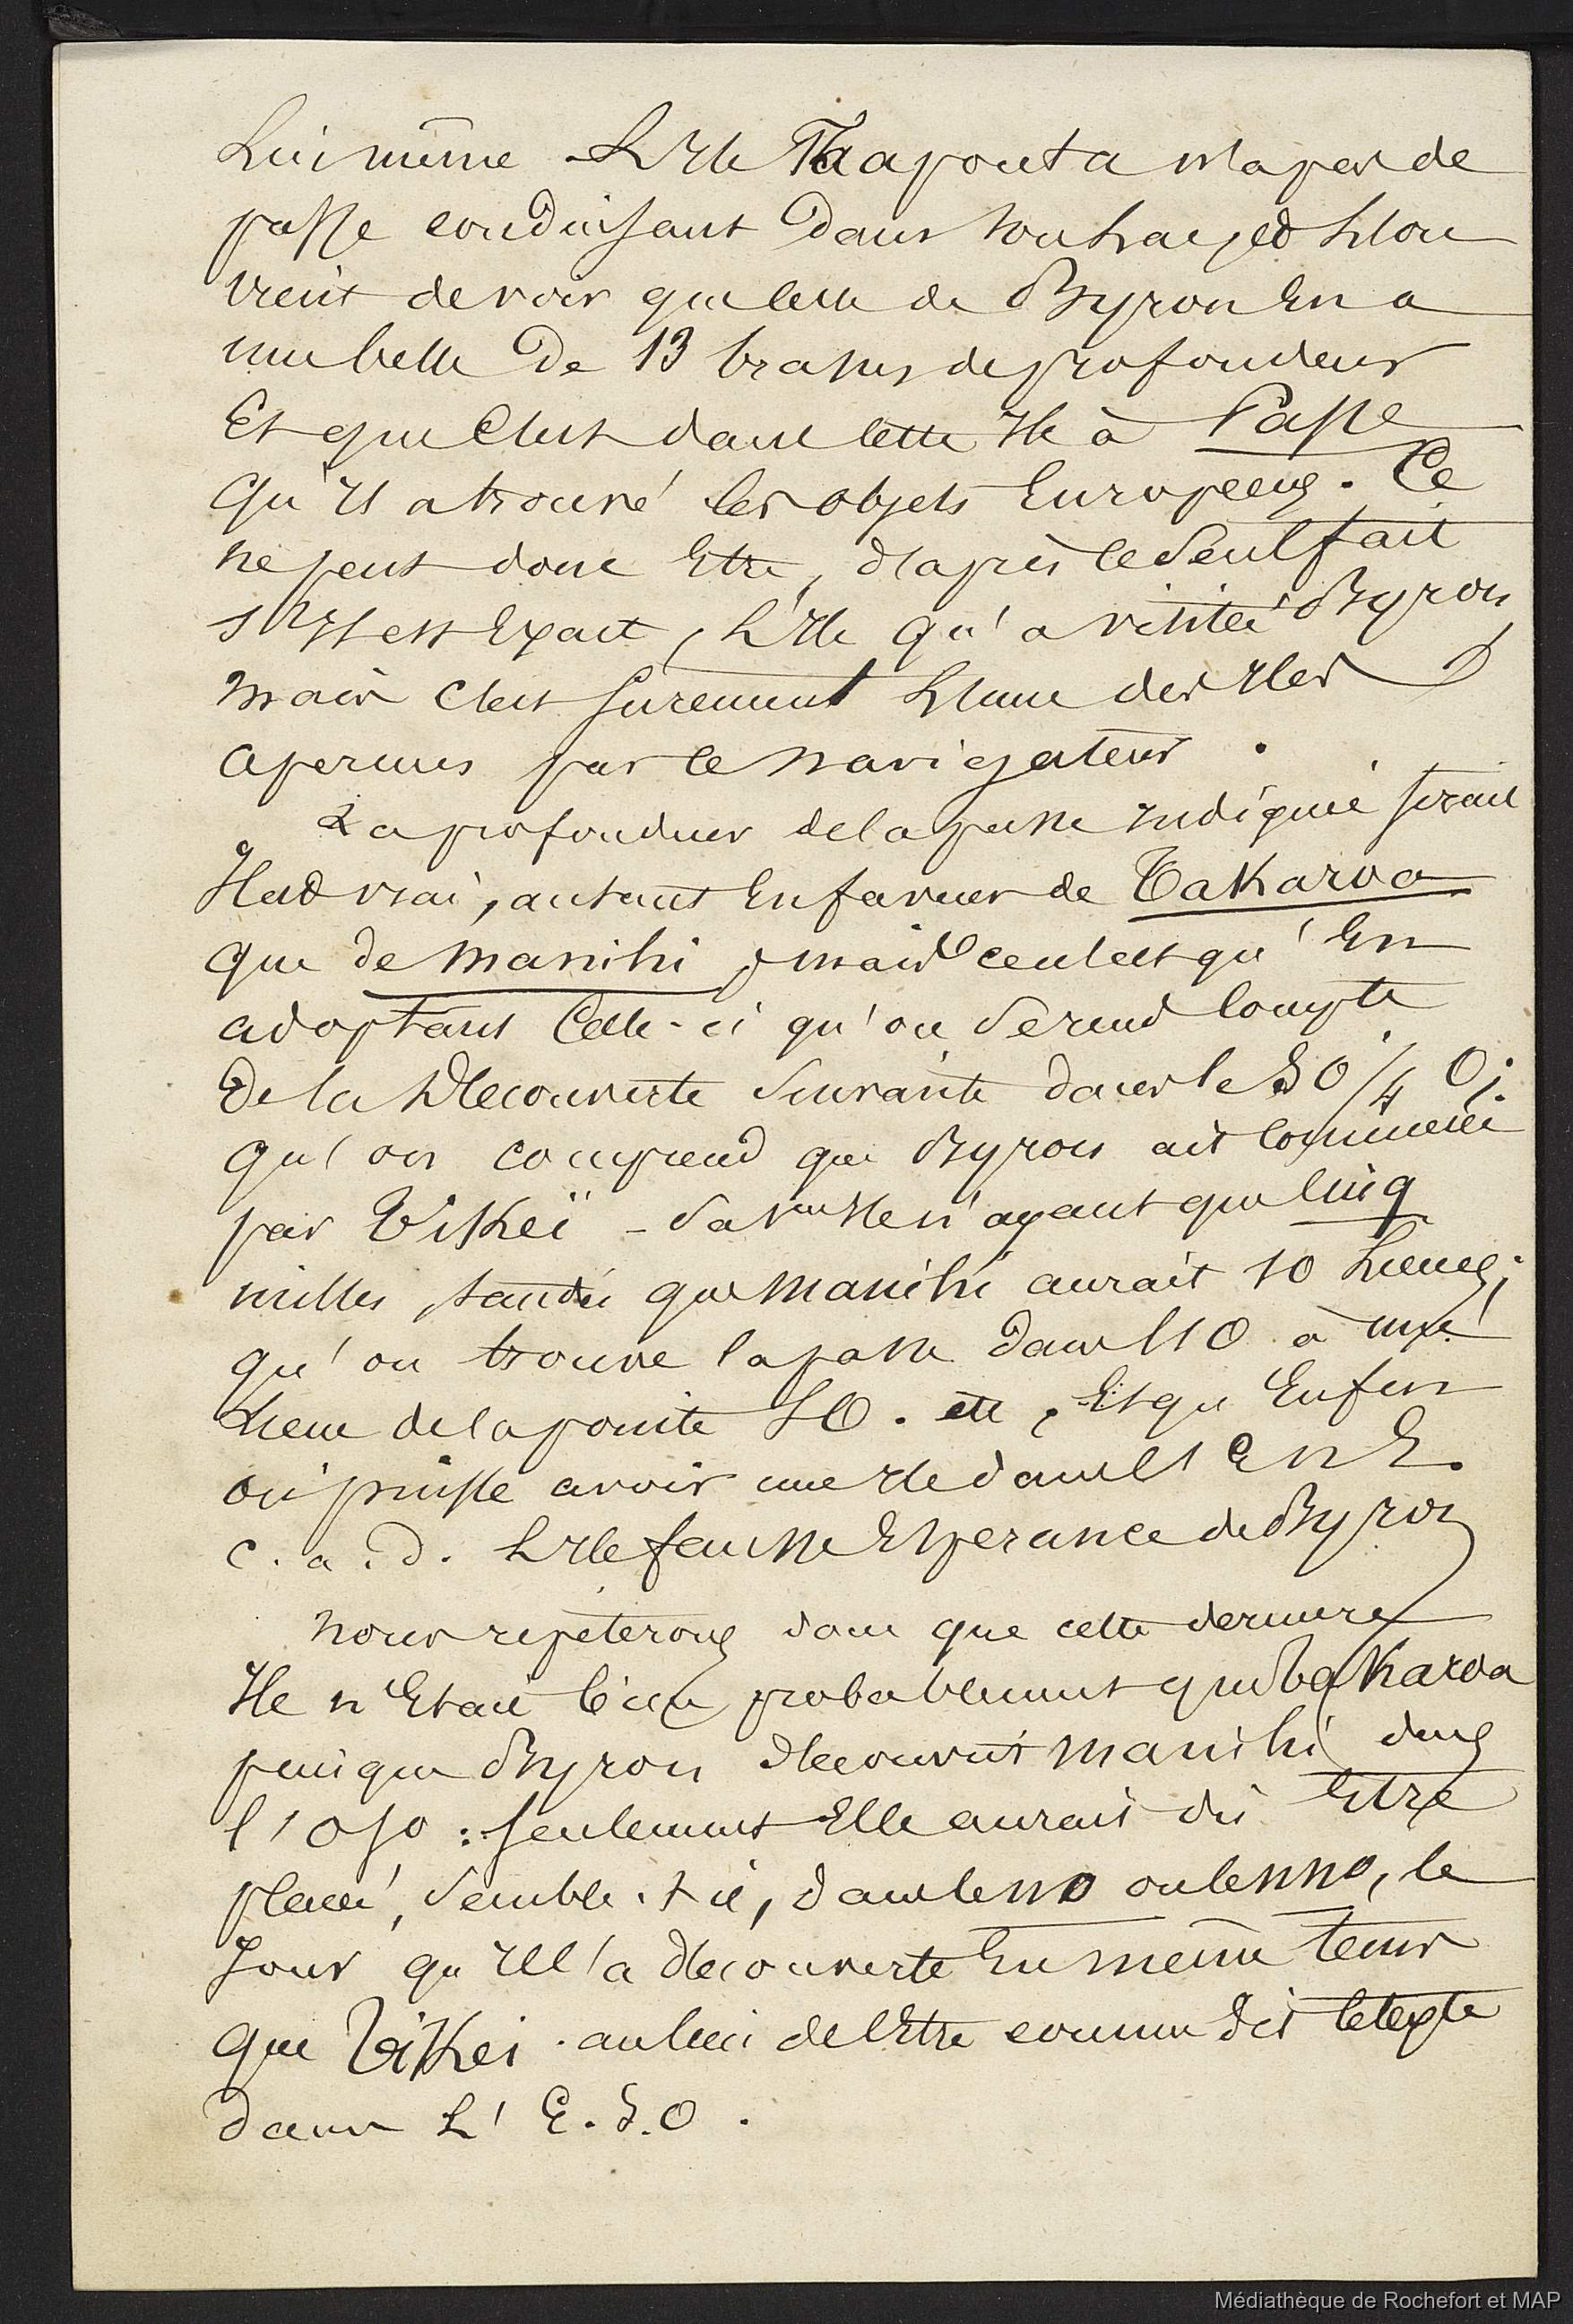 Lui même - L'Ile Taapouta n'a pas de
passe conduisant dans son Lac, et l'on
vient de voir que celle de Byron En a
une belle De 13 brasses de profondeur
Et que C'est dans cette Ile à Passe
qu'Il a trouvé les objets Européens. Ce
ne peut donc Etre, d'après le Seul fait
s'Il est Exact, L'Ile qu'a visitée Byron
mais C'est surement L'une des Iles
apercues par le navigateur.
La profondeur de la passe Indiquée serait
Il est vrai, autant En faveur de TaKaroa
que de manihi, mais ce n'est qu'En
adoptant Celle-ci qu'on Se rend Compte
De la Découverte Suivante dans le S O 1/4 O;
qu'on comprend que Byron ait Commencé
par TiKeï - Sa 1ere Ile n'ayant que Cinq
milles, tandis que Manihi aurait 10 Lieues;
qu'on trouve la passe dans l'O à une
Lieue de la pointe S O. etc, Et qu'Enfin
on puisse avoir une Ile dans l'E N E.
c. a. d. L'Ile fausse Esperance de Byron
Nous repeterons donc que cette derniere
Ile n'Etait bien probablement que TaKaroa
puisque Byron découvrit Manihi dans
l'O S O : seulement Elle aurait dû Etre
placée, Semble-t-il, dans le N O ou le N N O, le
Jour qu'Il l'a découverte En même tems
que TiKei. au lieu de l'Etre comme dit le texte
dans L'E. S. O.
Médiathèque de Rochefort et MAP